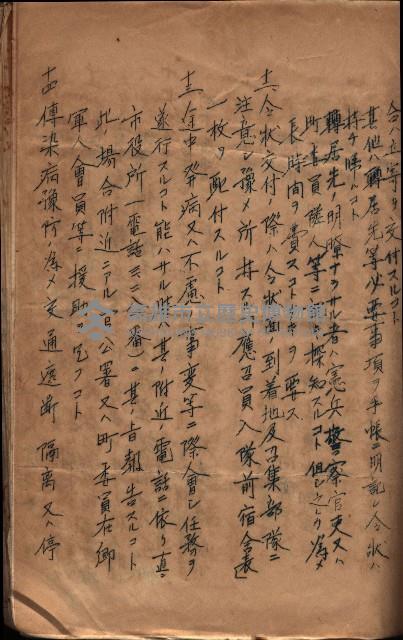 合ハ五等ヲ交付スルコト
其他ハ轉居先等必要事項ヲ手帳ニ明記シ令状ハ
持チ帰ルコト
轉居先ノ明瞭ナラサル者ハ憲兵警察官吏又ハ
町委員隣人等ニ就キ探知スルコト但シ之レカ為メ
長時間ヲ費スコトナキヲ要ス
十二、令状交付ノ際ハ令状面ノ到着地及召集部隊ニ
注意シ豫メ所持スル應召員入隊前宿舎表
一枚ヲ配付スルコト
十三、途中発病又ハ不慮ノ事変等ニ際會シ任務ヲ
遂行スルコト能ハサル時ハ其ノ附近ノ電話ニ依リ直ニ
市役所(電話 番)ニ其ノ旨報告スルコト
此ノ場合附近ニアル官公署又ハ町委員在郷
軍人會員等ニ援助ヲ乞フコト
十四、傳染病豫防ノ為メ交通遮断隔離又ハ停
臺南市立歷史博物館